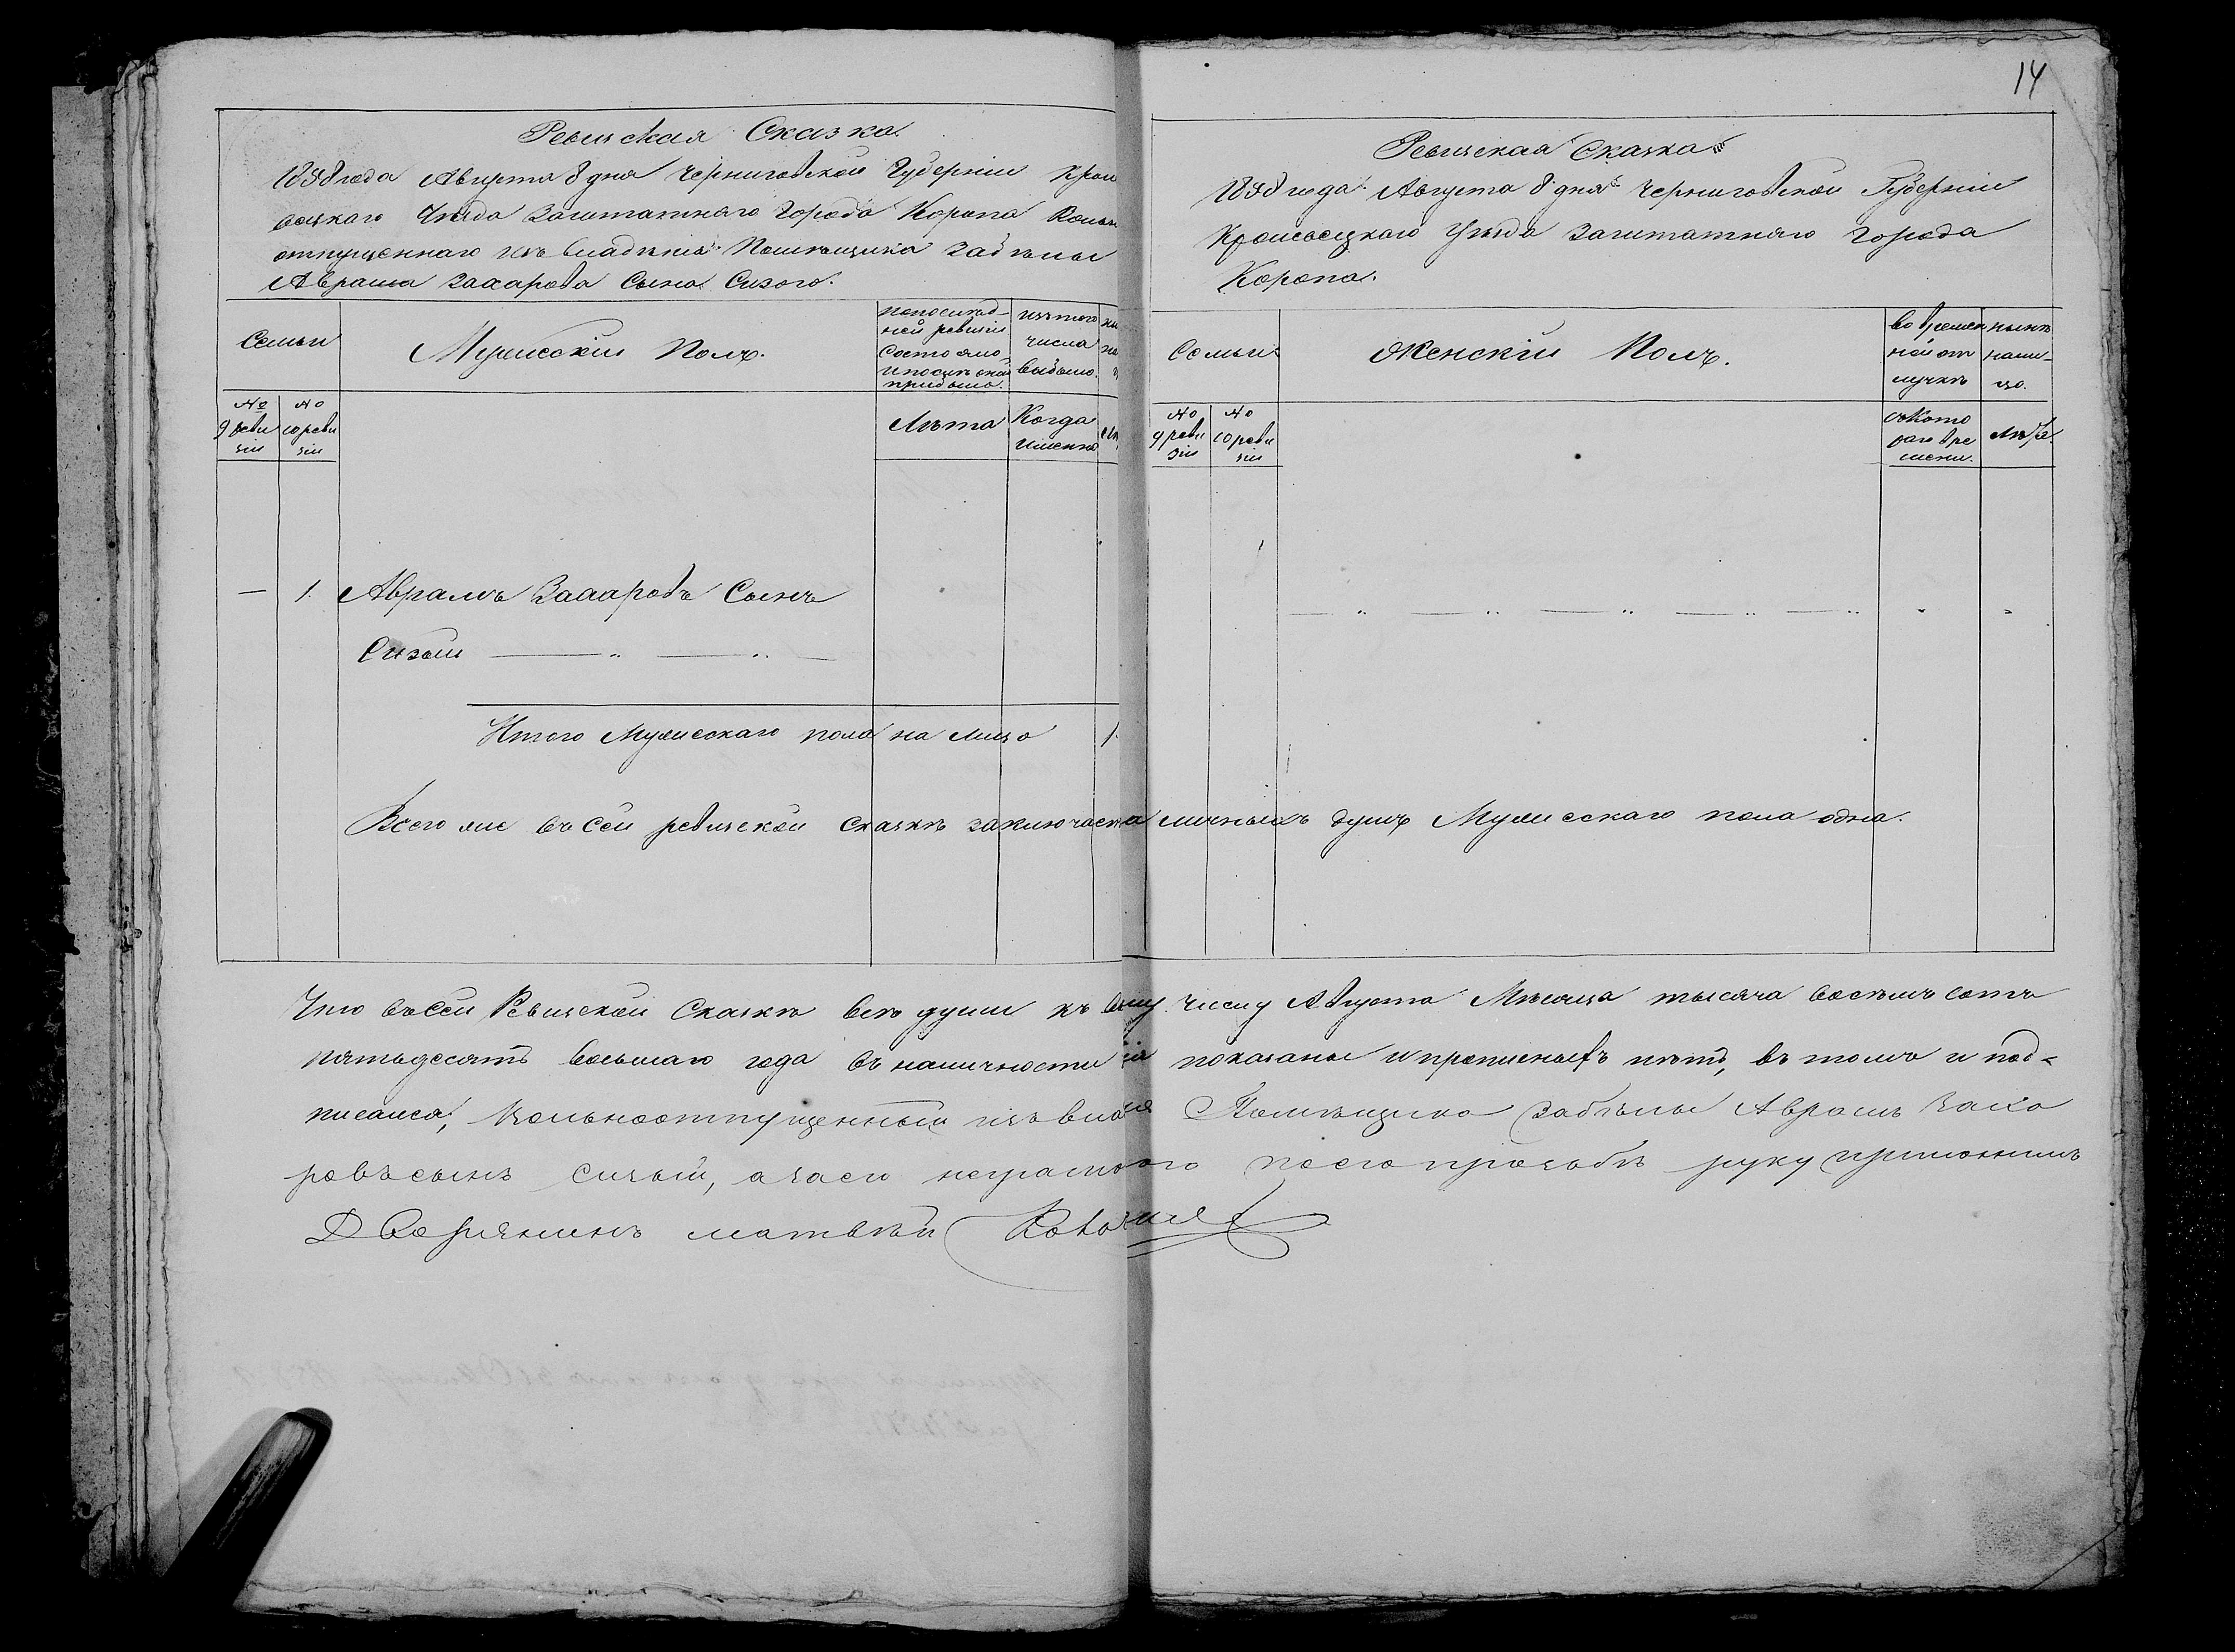 14
Ревизская Сказка.
1858 года Августа 8 дня Черниговской Губерніи Крол
вецкаго Уѣзда Заштатнаго Города Коропа Вольн
отпущеннаго изъ владѣнія Помѣщика Забѣлы
Аврама Захарова Сына Сизого.
Семьи
Мужескій Полъ.
По послѣд-
ней ревизіи
состояло
и послѣ оной
прибыло.
Изъ того
числа
выбыло.
№
9 реви
зіи
№
10 реви
зіи
Лѣта
Когда
именно
— 1. Аврамъ Захаровъ Сынъ
Сизый
Итого Мужескаго пола на лицо 1.
Ревизская Сказка
1858 года Августа 8 дня Черниговской Губерніи
Кролевецкаго Уѣзда Заштатнаго Города
Коропа.
Семьи
Женскій Полъ.
Во времен
ной от
лучкѣ
нынѣ
нали-
цо.
№
9 реви
зіи
№
10 реви
зіи
Съ кото
раго вре
мени.
Лѣта
Всего же въ сей ревизской сказкѣ заключается личныхъ душъ Мужескаго пола одна.
Что въ сей Ревизской Сказкѣ всѣ души къ числу Августа Мѣсяца тысяча восемь сотъ
пятьдесятъ восьмаго года въ наличности показаны и прописныхъ нѣтъ, въ томъ и под-
писался, Вольноотпущенный изъ вла Помѣщика Забѣлы Аврамъ Заха
ровъ сынъ сизый, а за его неграмо его по его прозьбѣ руку приложилъ
Дворянинъ матвѣй